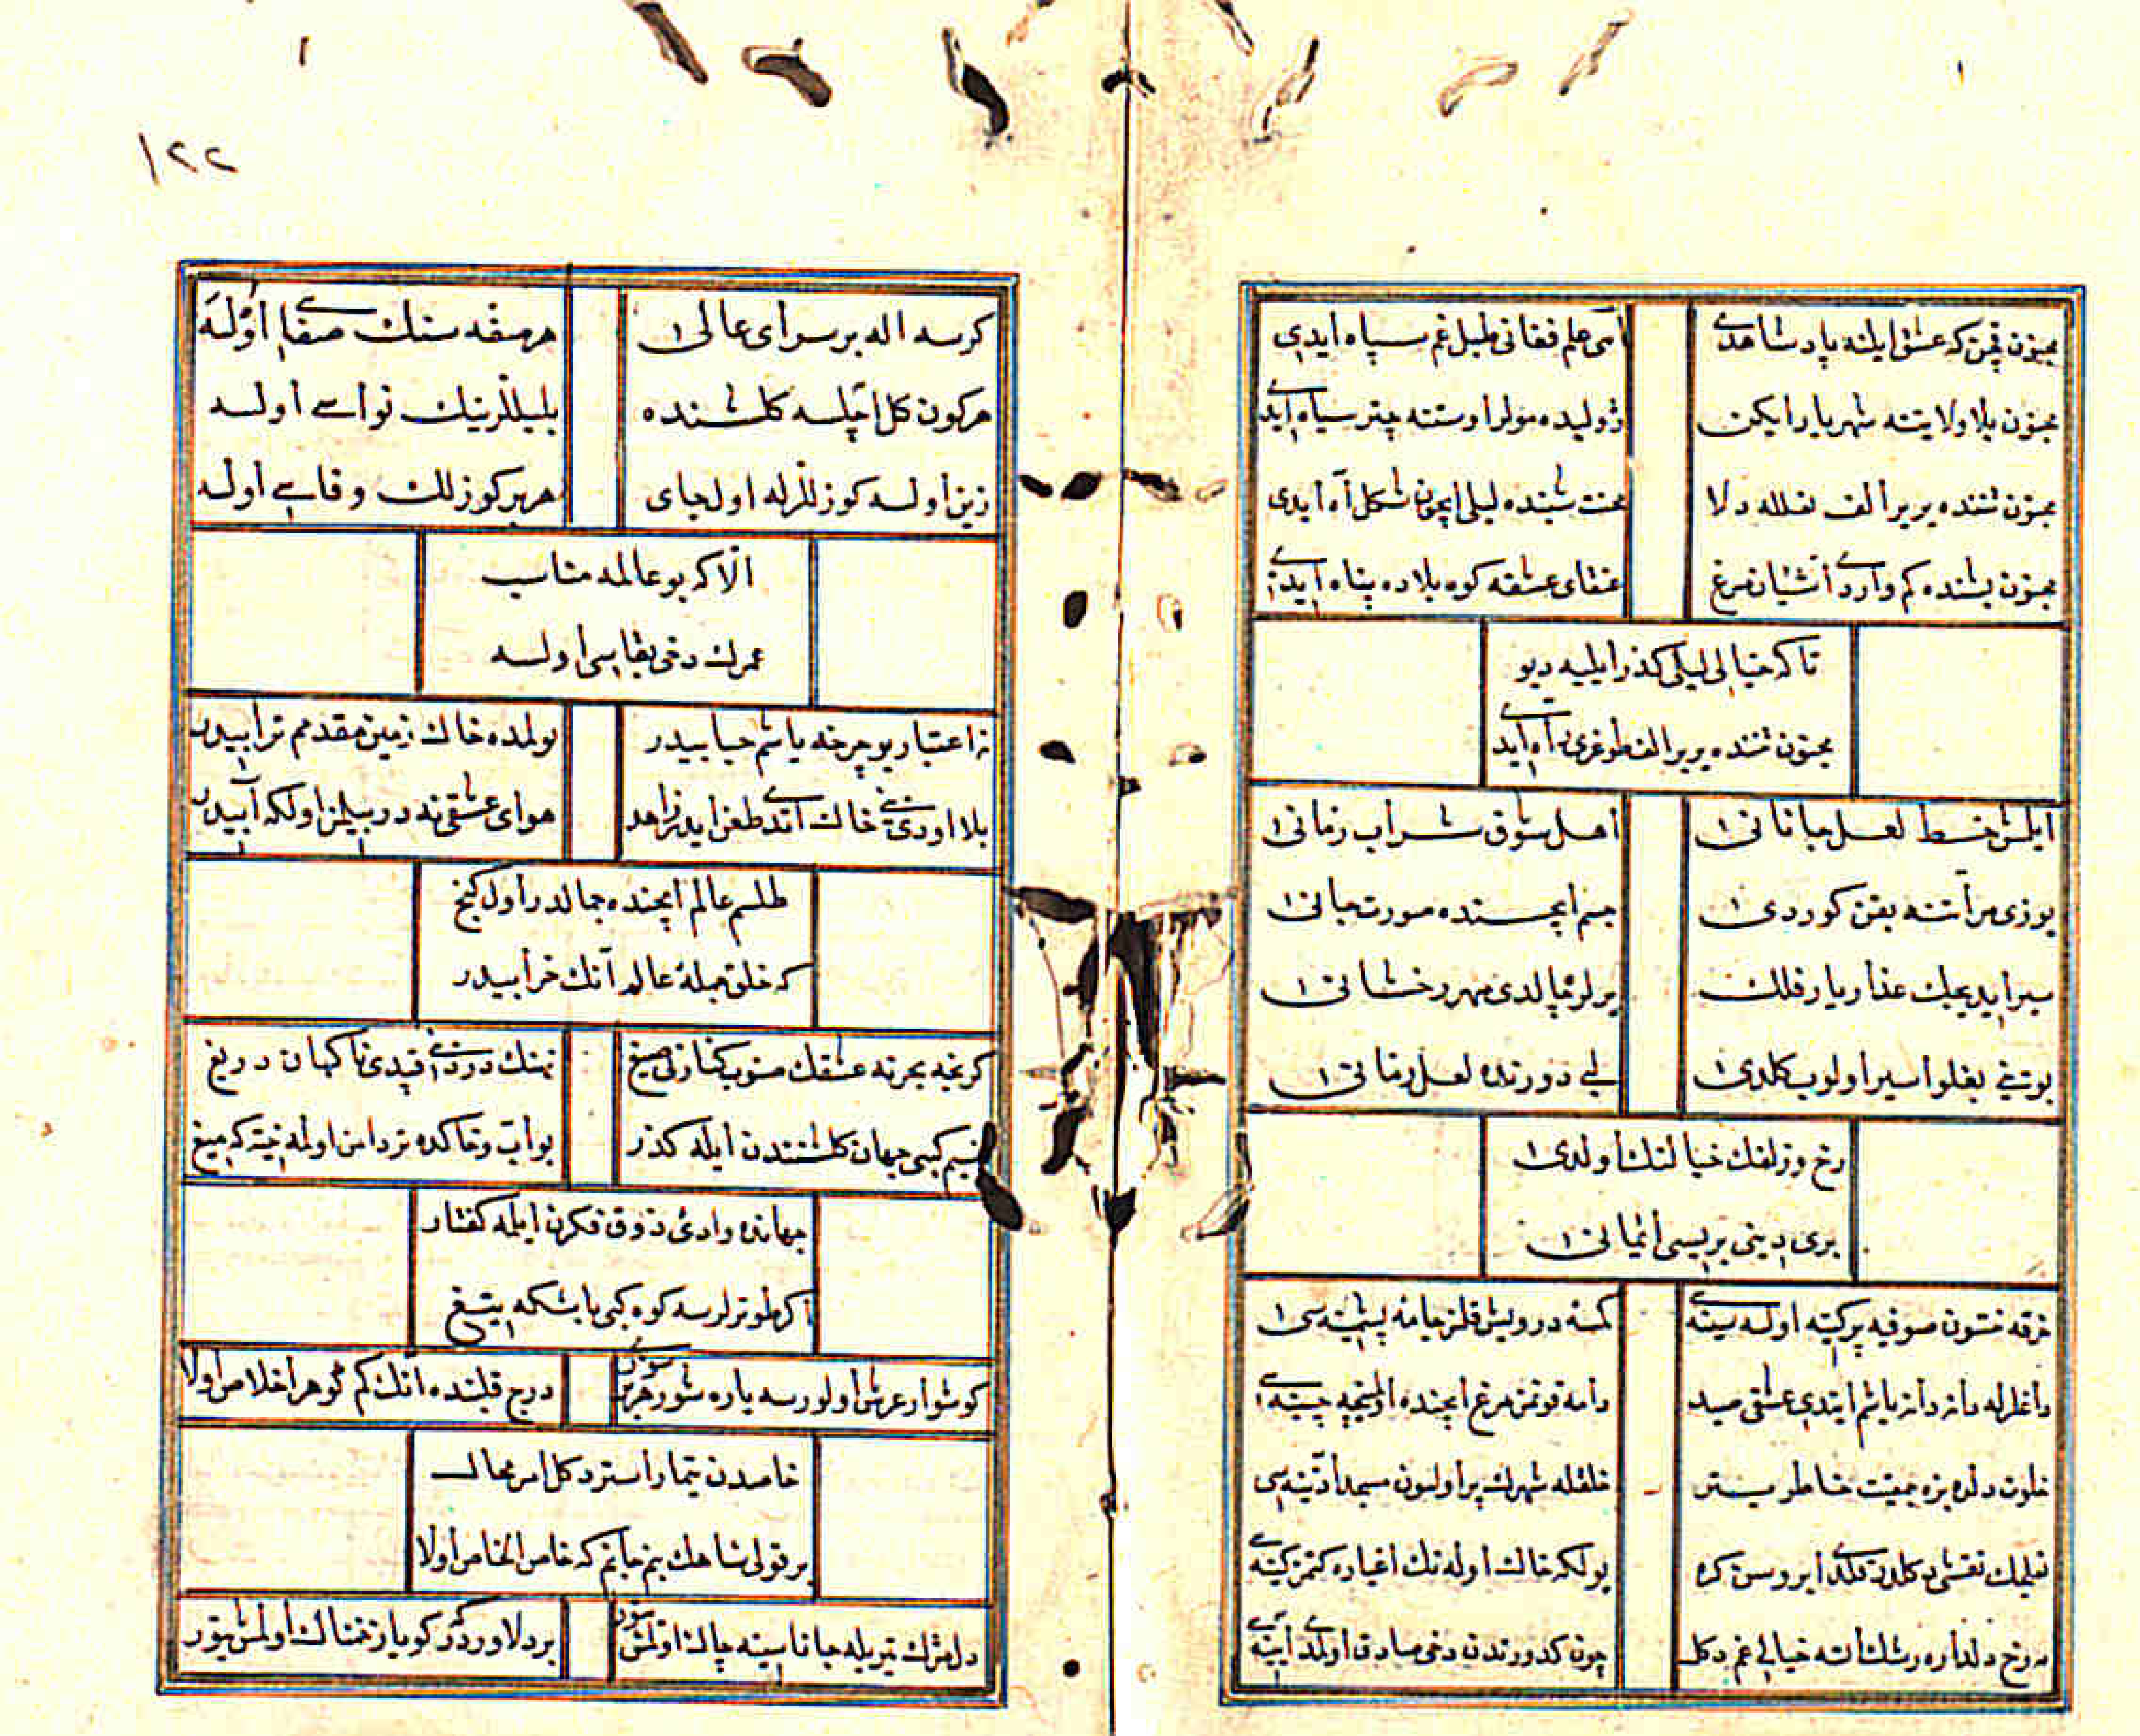 مجنون قچن که عشق ایلنه پادشاهدی
آهی علم فغانی طبل غم سپاه ایدی
مجنون بلا ولایتنه شهریار ایکن
ژولیده مولر اوستنه چتر سیاه ایدی
مجنون تننده بربر الف نعلله دلا
محنت شبنده لیلی ایچون شکل آه ایدی
مجنون بشنده کم واردی آشیان مرغ
عنقای عشقه کوه بلاده پناه ایدی
تا که خیالی لیلی کذر ایلیه دیو
مجنون تننده بربر الف طوغری راه ایدی
ایلمش خط لعل جانانی
اهل شوق شراب رمانی
یوزی مرآتنه بقن کوردی
جسم ایچنده صورت جانی
سیر ایدیجک عذار یار فلک
یرلره چالدی مهر رخشانی
بوینی بغلو اسیر اولوب کلدی
لبی دورنده لعل رمانی
رخ وزلفک خیالنک اولدی
بری دینی بریسی ایمانی
خرقه خشون صوفیه پر کینه اولسه سینه سی
کمسه درویش قلمز جامۀ پشمینه سی
داغلرله دانه دانه یاشم ایتدی عشقی صید
دامه قونمز مرغ ایچنده اولمینجه چینه سی
خلوت دلده بزه جمعیت خاطر یتر
خلقله شهرک پر اولسون مسجد آدینه سی
نعلمک نقشی دکلدر قلدی ابروسن کره
یولکه خاک اوله نک اغیاره کتمز کینه سی
رخ دلداره رشک اتنه خیالی غم دکل
چون کدورتدن دخی صادق اولمدی آینه سی
۱۲۲
کرسه اله بر سرای عالی
هر صفه سنک صفاسی اولسه
هر کون کل اچلسه کلشنده
بلبللرینک نواسی اولسه
زین اولسه کوزللرله اول جای
هر بر کوزلک وفاسی اولسه
الا که بو عالمه مناسب
عمرک دخی بقاسی اولسه
نه اعتبار بو چرخه یاشم حبابیدر
یولمده خاک زمین مقدمم ترابیدر
بلا اودینی خاک اتدی طعن ایدر زاهد
هوای عشقی نه در بیلمز اولکه آبیدر
طلسم عالم ایچنده جمالدر اول کنج
که خلق جملۀ عالم آنک خرابیدر
کریجه بحرنه عشقک صنوب کنارنی صیغ
نهنک دردی قپدی ناکهان دریغ
نسیم کبی جهان کلشنندن ایله کذر
بو آب وخاکده تردامن اولمه نیته که میغ
جهانده وادئ ذوق فکرن ایلمه کفتار
اکر طوترلرسه کوه کبی باشکه تیغ
کوشوار عرش اولورسه یاره شور هر بر سوزی
درج قلبنده انک کم کوهر اخلاص اولا
خاصدن تیمار استر دکل امر محال
بر قولی شاهک بنم جانم که خاص الخاص اولا
دلبرک تیریله جانا سینه چاک اولمش یتور
بر دلاوردر کویا زخمناک اولمش یتور